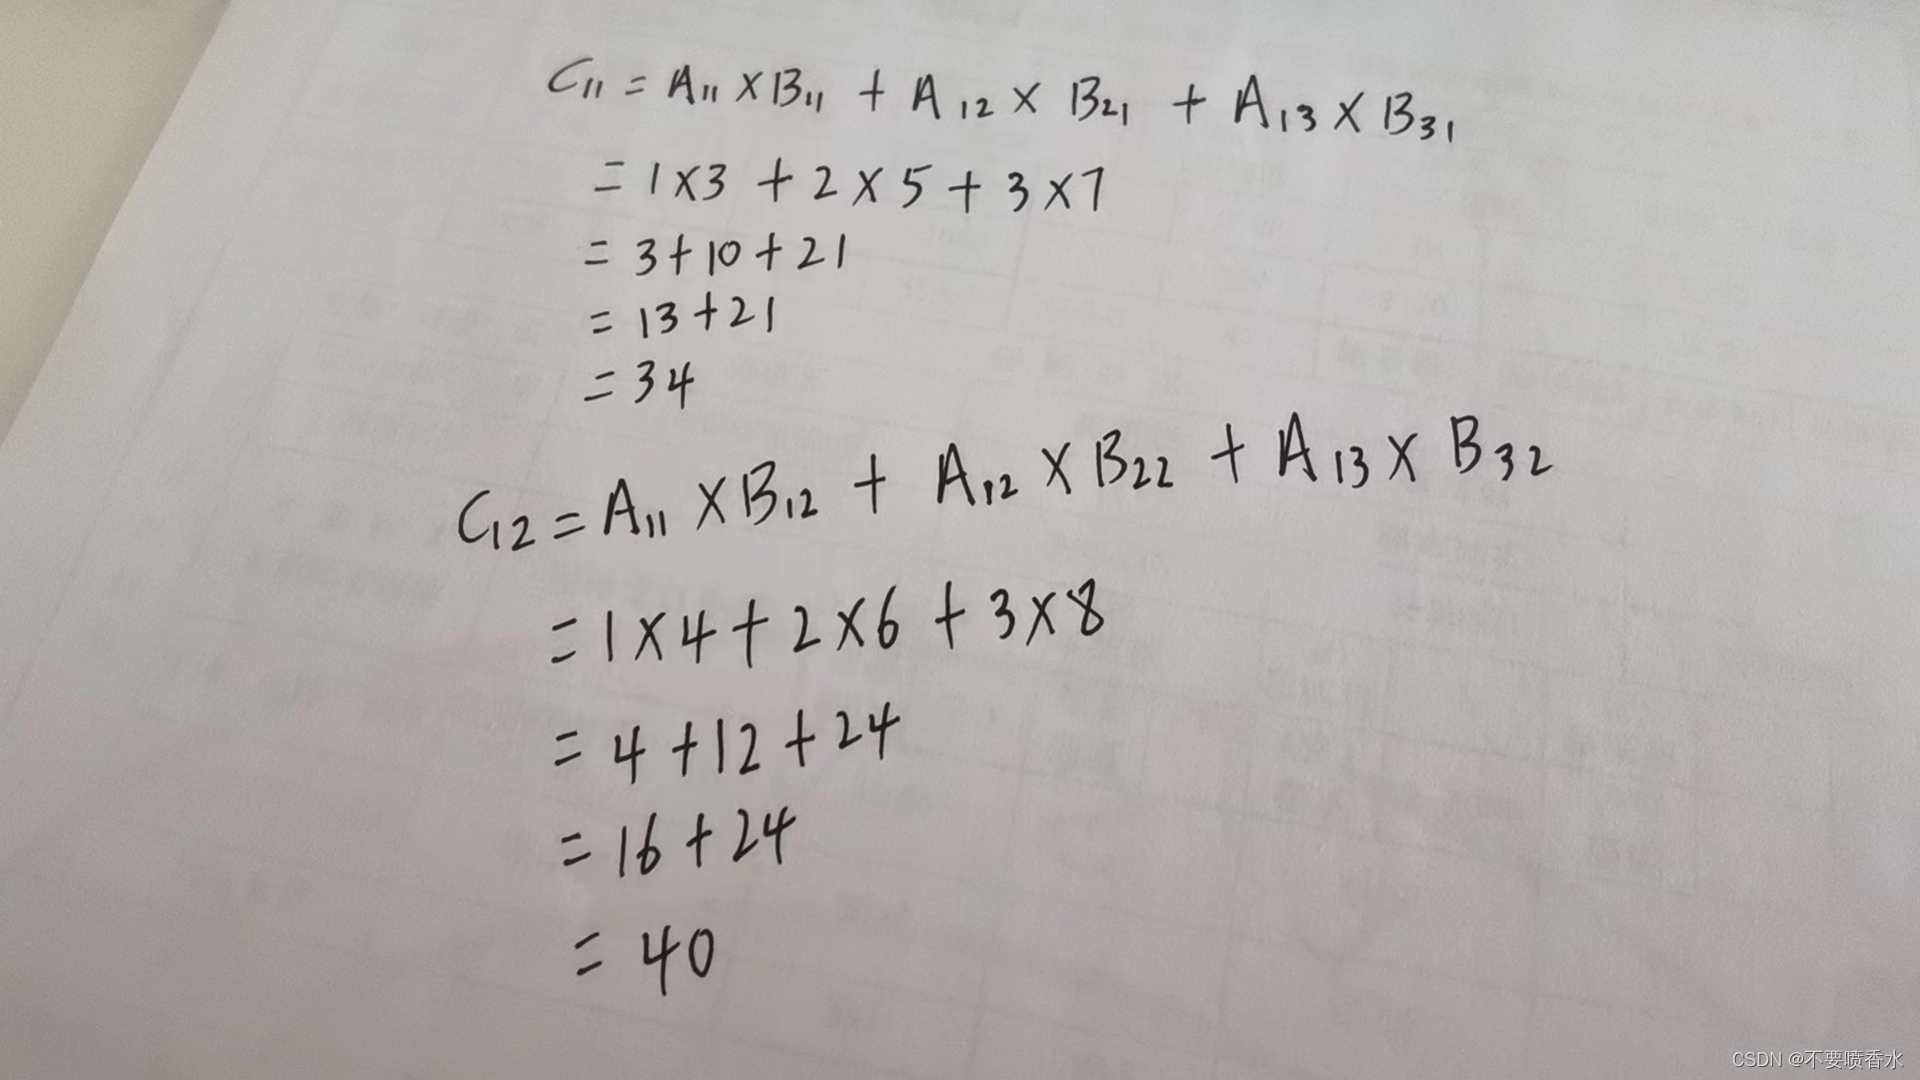 C11 = A11 × B11 + A12 × B21 + A13 × B31
= 1×3 + 2×5 + 3×7
= 3+10+21
= 13+21
= 34
C12 = A11 × B12 + A12 × B22 + A13 × B32
= 1×4 + 2×6 + 3×8
= 4+12+24
= 16+24
= 40
CSDN @不要喷香水